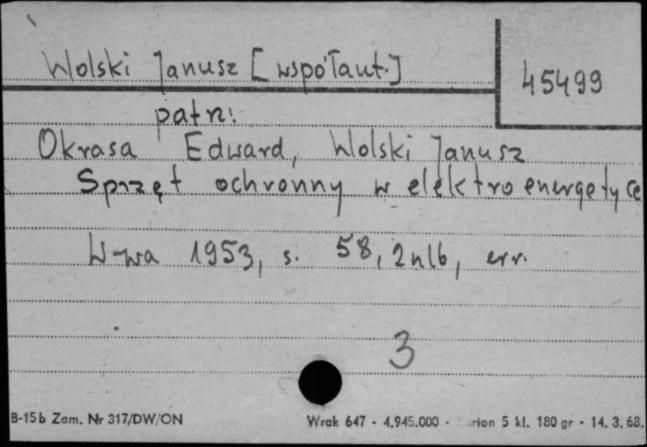 Wolski Janusz [współaut.]
45499
patrz:
Okrasa Edward, Wolski Janusz
Sprzęt ochronny w elektroenergetyce
W-wa 1953, s. 58, 2nlb, err.
3
B-15b Zam. Nr 317/DW/ON
Wrak 647 - 4.945.000 - 5 kl. 180 gr - 14. 3. 68.